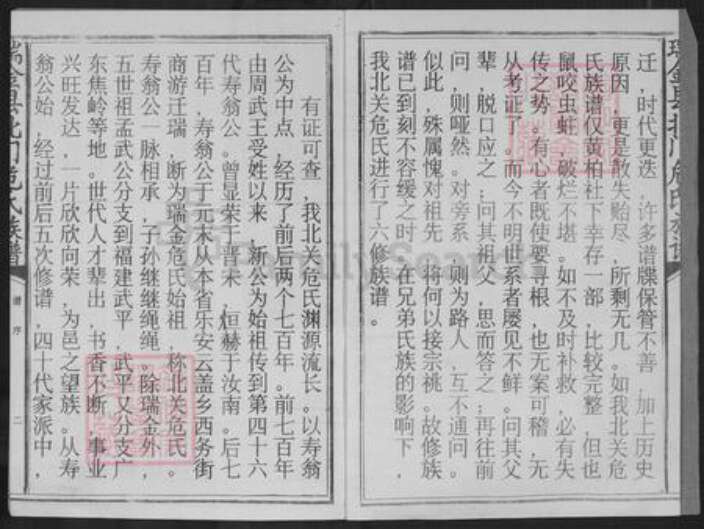 瑞金县北门危氏族谱
迁，时代更迭，许多谱牒保管不善，加上历史
原因，更是散失贻尽，所剩无几。如我北关危
氏族谱仅黄柏杜下幸存一部，比较完整，但也
鼠咬虫蛀，破烂不堪。如不及时补救，必有失
传之势。有心者既使要寻根，也无案可稽，无
从考证了。而今不明世系者屡见不鲜。问其父
辈，脱口应之；问其祖父，思而答之；再往前
问，则哑然。对旁系，则为路人，互不通问。
似此，殊属愧对祖先，将何以接宗祧。故修族
谱已到刻不容缓之时，在兄弟氏族的影响下，
我北关危氏进行了六修族谱。
有证可查，我北关危氏渊源流长。以寿翁
公为中点，经历了前后两个七百年。前七百年
由周武王受姓以来，新公为始祖传到第四十六
代寿翁公。曾显荣于晋末，烜赫于汝南。后七
百年，寿翁公于元末从本省乐安云盖乡西务街
商游迁瑞，断为瑞金危氏始祖，称北关危氏。
寿翁公一脉相承，子孙继继绳绳。除瑞金外，
五世祖孟武公分支到福建武平，武平又分支广
东焦岭等地。世代人才辈出，书香不断，事业
兴旺发达，一片欣欣向荣，为邑之望族。从寿
翁公始，经过前后五次修谱，四十代家派中，
瑞金县北门危氏族谱
谱序
二
FamilySearch